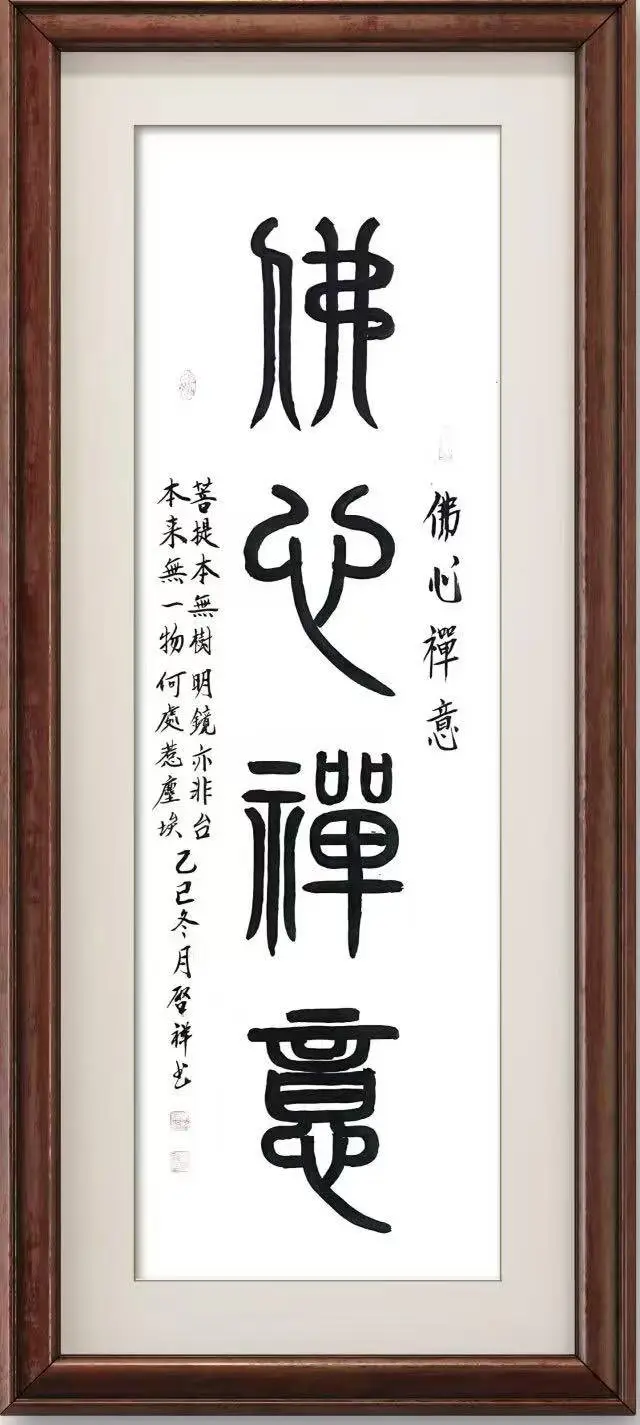 佛心禪意
佛心禪意
菩提本無樹明鏡亦非台
本来無一物何處惹塵埃
乙巳冬月啓祥书